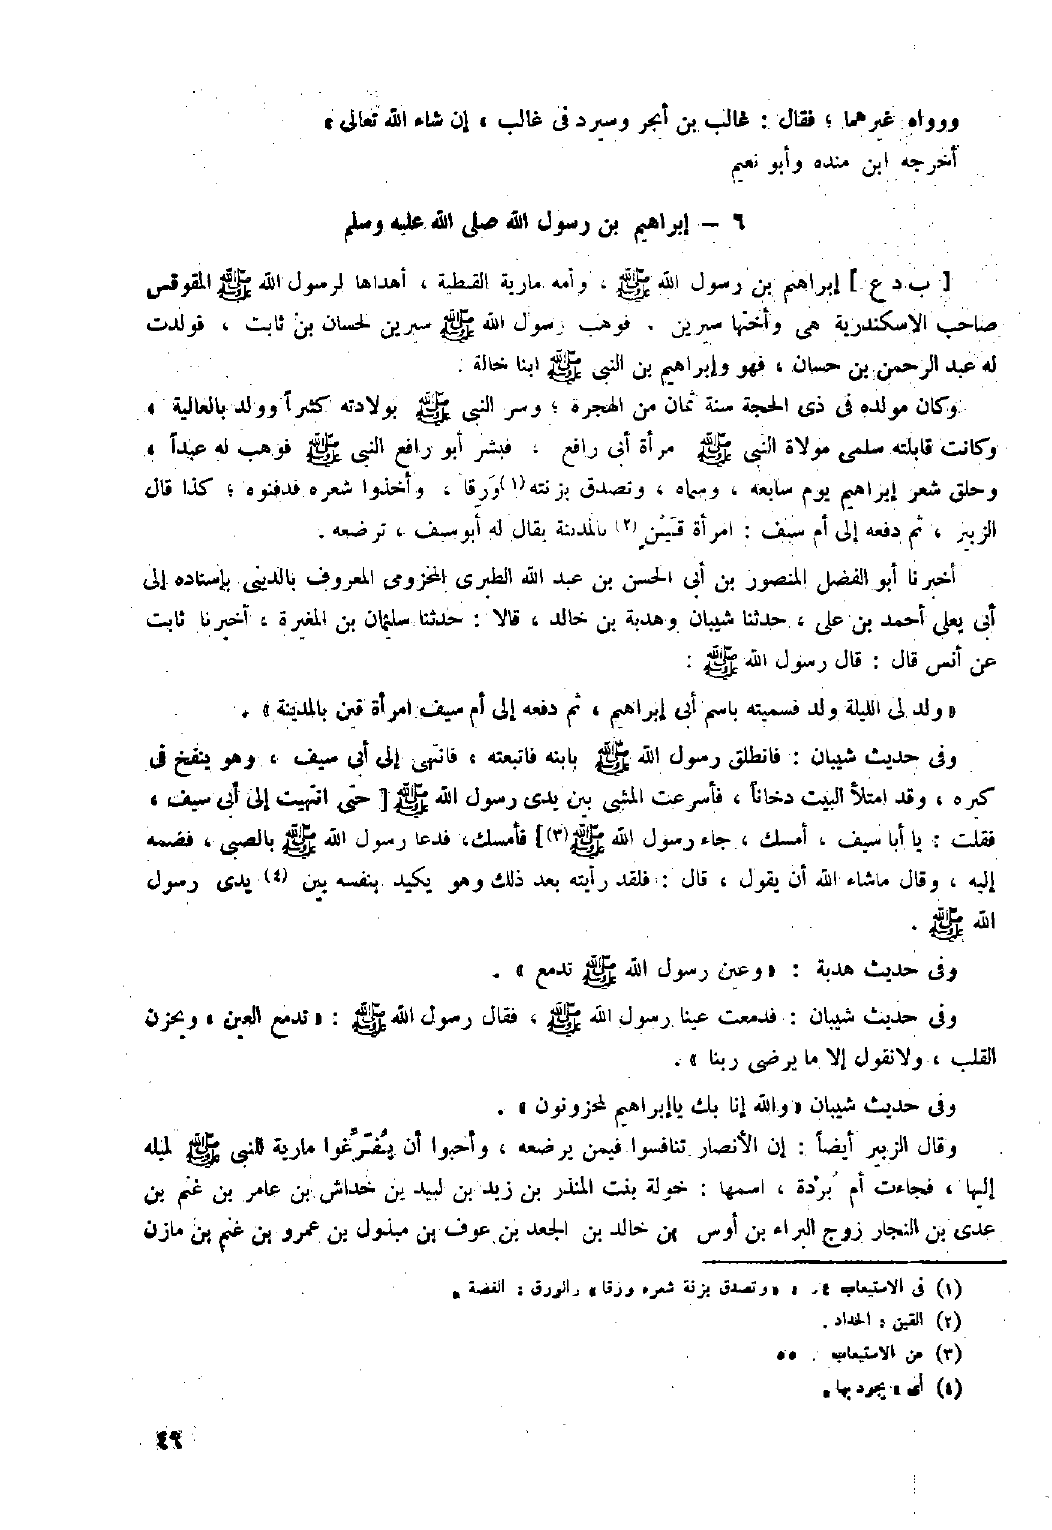 ورواه غيرهما ؛ فقال : غالب بن أبجر وسيرد فى غالب ، إن شاء الله تعالى ،
أخرجه ابن منده وأبو نعيم
٦ – إبراهيم بن رسول الله صلى الله عليه وسلم
[ ب د ع ] إبراهيم بن رسول الله ﷺ ، وأمه مارية القبطية ، أهداها لرسول الله ﷺ المقوقس
صاحب الاسكندرية هى وأختها سيرين . فوهب رسول الله ﷺ سيرين لحسان بن ثابت ، فولدت
له عبد الرحمن بن حسان ، فهو وإبراهيم بن النبى ﷺ ابنا خالة .
وكان مولده فى ذى الحجة سنة ثمان من الهجرة ؛ وسر النبى ﷺ بولادته كثيراً وولد بالعالية ،
وكانت قابلته سلمى مولاة النبى ﷺ مرأة أبى رافع ، فبشر أبو رافع النبى ﷺ فوهب له عبداً ،
وحلق شعر إبراهيم يوم سابعه ، وسماه ، وتصدق بزنته (١) وَرِقا ، وأخذوا شعره فدفنوه ؛ كذا قال
الزبير ، ثم دفعه إلى أم سيف : امرأة قَيْنٍ (٢) بالمدينة يقال له أبو سيف ، ترضعه .
أخبرنا أبو الفضل المنصور بن أبى الحسن بن عبد الله الطبرى المخزومى المعروف بالدينى بإسناده إلى
أبى يعلى أحمد بن على ، حدثنا شيبان وهدبة بن خالد ، قالا : حدثنا سليمان بن المغيرة ، أخبرنا ثابت
عن أنس قال : قال رسول الله ﷺ :
« ولد لى الليلة ولد فسميته باسم أبى إبراهيم ، ثم دفعه إلى أم سيف امرأة قين بالمدينة » .
وفى حديث شيبان : فانطلق رسول الله ﷺ بابنه فاتبعته ، فانتهى إلى أبى سيف ، وهو ينفخ فى
كيره ، وقد امتلأ البيت دخاناً ، فأسرعت المشى بين يدى رسول الله ﷺ [ حتى انتهيت إلى أبى سيف ،
فقلت : يا أبا سيف ، أمسك ، جاء رسول الله ﷺ (٣) ] فأمسك، فدعا رسول الله ﷺ بالصبى ، فضمه
إليه ، وقال ماشاء الله أن يقول ، قال : فلقد رأيته بعد ذلك وهو يكيد بنفسه بين (٤) يدى رسول
الله ﷺ .
وفى حديث هدبة : « وعين رسول الله ﷺ تدمع » .
وفى حديث شيبان : فدمعت عينا رسول الله ﷺ ، فقال رسول الله ﷺ : « تدمع العين ، ويحزن
القلب ، ولانقول إلا ما يرضى ربنا » .
وفى حديث شيبان « والله إنا بك ياإبراهيم لمحزونون » .
وقال الزبير أيضاً : إن الأنصار تنافسوا فيمن يرضعه ، وأحبوا أن يُفَرِّغوا مارية للنبى ﷺ لميله
إليها ، فجاءت أم بُرْدة ، اسمها : خولة بنت المنذر بن زيد بن لبيد بن خداش بن عامر بن غنم بن
عدى بن النجار زوج البراء بن أوس بن خالد بن الجعد بن عوف بن مبذول بن عمرو بن غنم بن مازن
(١) فى الاستيعاب ٤٠ : «وتصدق بزنة شعره ورقا» والورق : الفضة .
(٢) القين : الحداد .
(٣) من الاستيعاب . ٥٥
(٤) أى : يجود بها .
٤٩